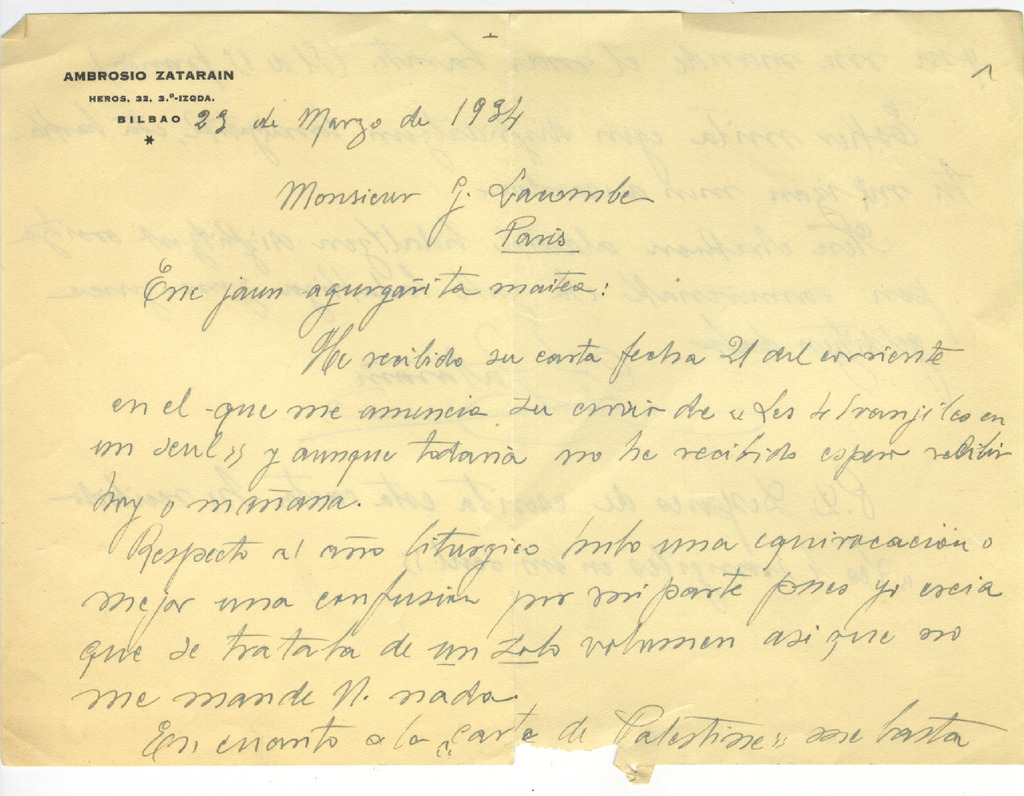 AMBROSIO ZATARAIN
HEROS, 32, 3.º-IZQDA.
BILBAO 23 de Marzo de 1934
*
Monsieur G. Lacombe
Paris
Ene jaun agurgarri ta maitea:
He recibido su carta fecha 21 del corriente
en el que me anuncia su envio de "Les 4 Evangiles en
un seul" y aunque todavia no he recibido espero recibir
hoy o mañana.
Respecto al año liturgico hubo una equivocación o
mejor una confusión por mi parte pues yo creia
que se trataba de un solo volumen asi que no
me mande V. nada.
En cuanto a la "Carte de Palestine" me basta